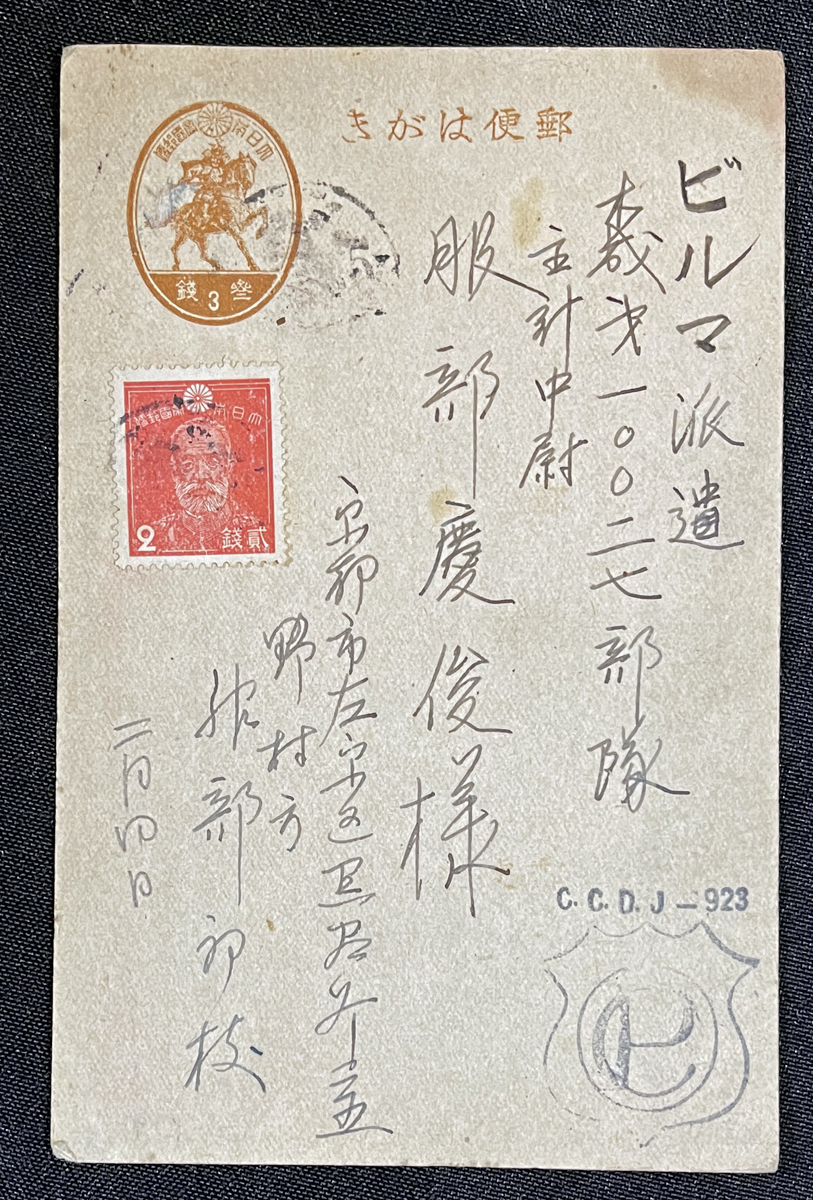 郵便はがき
大日本帝國郵便
叁3錢
大日本帝國郵便
2 貳錢
ビルマ派遣
威才一〇〇二七部隊
主計中尉
服部慶俊様
京都市左京区
野村方
服部初枝
二月四日
C. C. D. J - 923